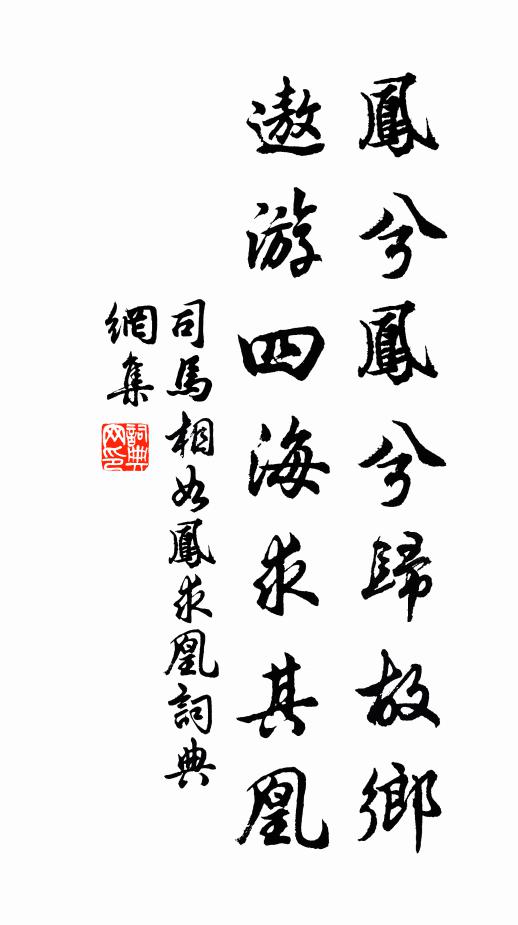 鳳兮鳳兮歸故鄉
遨游四海求其凰
司馬相如鳳求凰詞典
網集
詞典網印